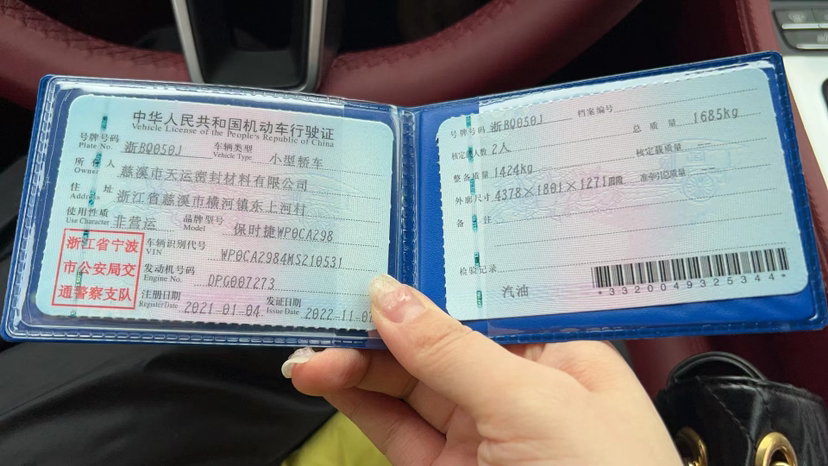 中华人民共和国机动车行驶证
Vehicle License of the People's Republic of China
号牌号码 Plate No. 浙BQ050J 车辆类型 Vehicle Type 小型轿车
所有人 Owner 慈溪市天运密封材料有限公司
住址 Address 浙江省慈溪市横河镇东上河村
使用性质 Use Character 非营运 品牌型号 Model 保时捷WP0CA298
车辆识别代号 VIN WP0CA2984MS210531
发动机号码 Engine No. DPG007273
注册日期 Register Date 2021-01-04 发证日期 Issue Date 2022-11-07
浙江省宁波
市公安局交
通警察支队
号牌号码 浙BQ050J 档案编号
核定载人数 2人 总质量 1685kg
整备质量 1424kg 核定载质量 --
外廓尺寸 4378×1801×1271mm 准牵引总质量 --
备注
检验记录
汽油
*3320049325344*